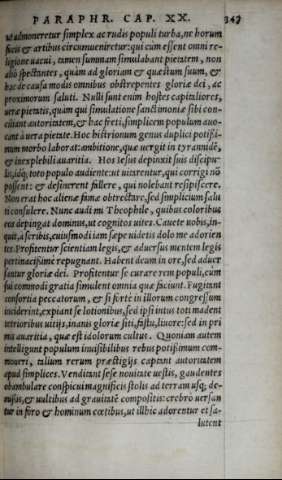 PARAPHR. CAP. XX. 347
ut admoneretur simplex ac rudis populi turba, ne horum
fucis & artibus circumueniretur: qui cum essent omni re-
ligione uacui, tamen summam simulabant pietatem, non
aliò spectantes, quàm ad gloriam & quæstum suum, &
hac de causa modis omnibus obstrepentes gloriæ dei, ac
proximorum saluti. Nulli sunt enim hostes capitaliores,
uera pietatis, quàm qui simulatione sanctimoniæ sibi con-
ciliant autoritatem, & hac freti, simplicem populum auo-
cant à uera pietate. Hoc histrionum genus duplici potissi-
mum morbo laborat: ambitione, quæ uergit in tyrannidē,
& inexplebili auaritia. Hos Iesus depinxit suis discipu-
lis, idq; toto populo audiente: ut uitarentur, qui corrigi nō
possent: & desinerent fallere, qui nolebant resipiscere.
Non erat hoc alienæ famæ obtrectare, sed simplicium salu
ti consulere. Nunc audi mi Theophile, quibus coloribus
eos depingat dominus, ut cognitos uites. Cauete uobis, in-
quit, à scribis, cuiusmodi iam sæpe uidetis dolo me adorien
tes. Profitentur scientiam legis, & aduersus mentem legis
pertinacissime repugnant. Habent deum in ore, sed aduer
santur gloriæ dei. Profitentur se curare rem populi, cùm
sui commodi gratia simulent omnia quæ faciunt. Fugitant
consortia peccatorum, & si fortè in illorum congressum
inciderint, expiant se lotionibus, sed ipsi intus toti madent
tetrioribus uitijs, inanis gloriæ siti, fastu, liuore: sed in pri
mis auaritia, quæ est idolorum cultus. Quoniam autem
intelligunt populum inuisibilibus rebus potissimum com-
moueri, talium rerum præstigijs captant autoritatem
apud simplices. Venditant sese nouitate uestis, gaudentes
obambulare conspicui magnificis stolis ad terram usq; de-
fusis, & uultibus ad grauitatē compositis: crebrò uersan
tur in foro & hominum cœtibus, ut illic adorentur et sa-
lutent